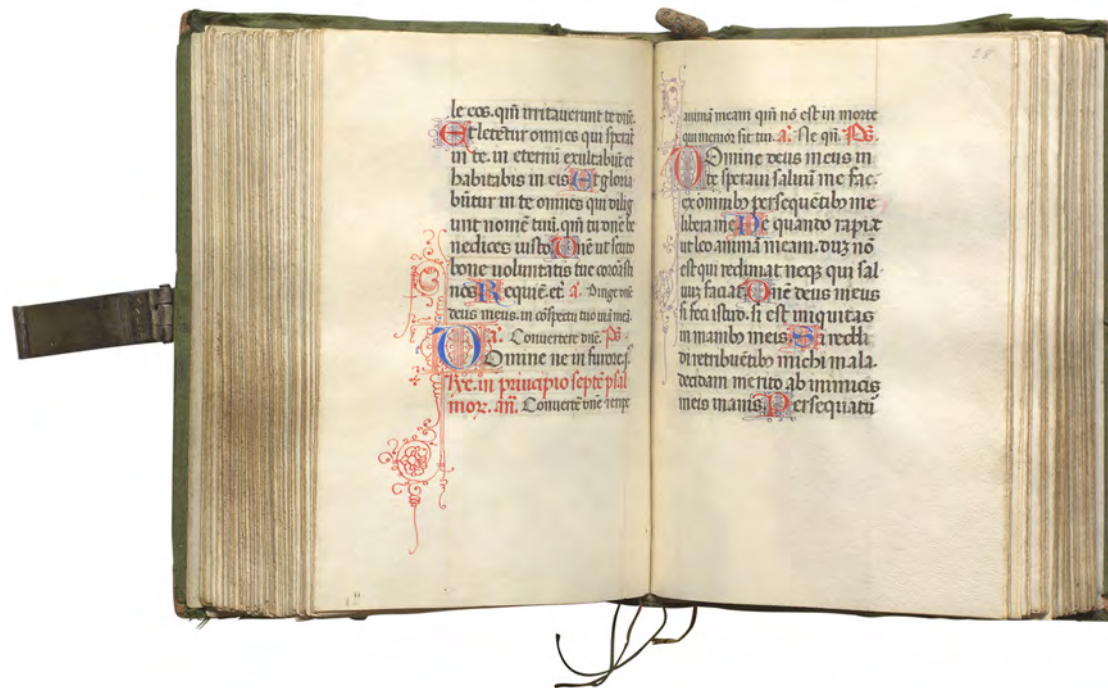 le eos. qm̄ irritauerunt te dn̄e.
Et letētur omnes qui sperāt
in te. in eternū exultabūt et
habitabis in eis Et gloria
būtur in te omnes qui dilig
unt nomē tuū. qm̄ tu dn̄e be
nedices iusto Dn̄e ut scuto
bone uoluntatis tue coronasti
nos Requiē. et. a. Dirige dn̄e
deus meus. in cōspectu tuo uiā meā.
a. Conuertere dn̄e. Ps
Domine ne in furore.
Re. in principio septē psal
mor. an̄. Conuertē dn̄e et eripe
28
animā meam qm̄ nō est in morte
qui memor sit tui. a. Ne qn̄. Ps.
Domine deus meus in
te speraui saluū me fac.
ex omnibꝫ persequētibꝫ me
libera me Ne quando rapiat
ut leo animā meam. duꝫ nō
est qui redimat neqꝫ qui sal
uuꝫ faciat Dn̄e deus meus
si feci istud. si est iniquitas
in manibꝫ meis Si reddi
di retribuētibꝫ michi mala.
decidam merito ab inimicis
meis inanis Persequatū